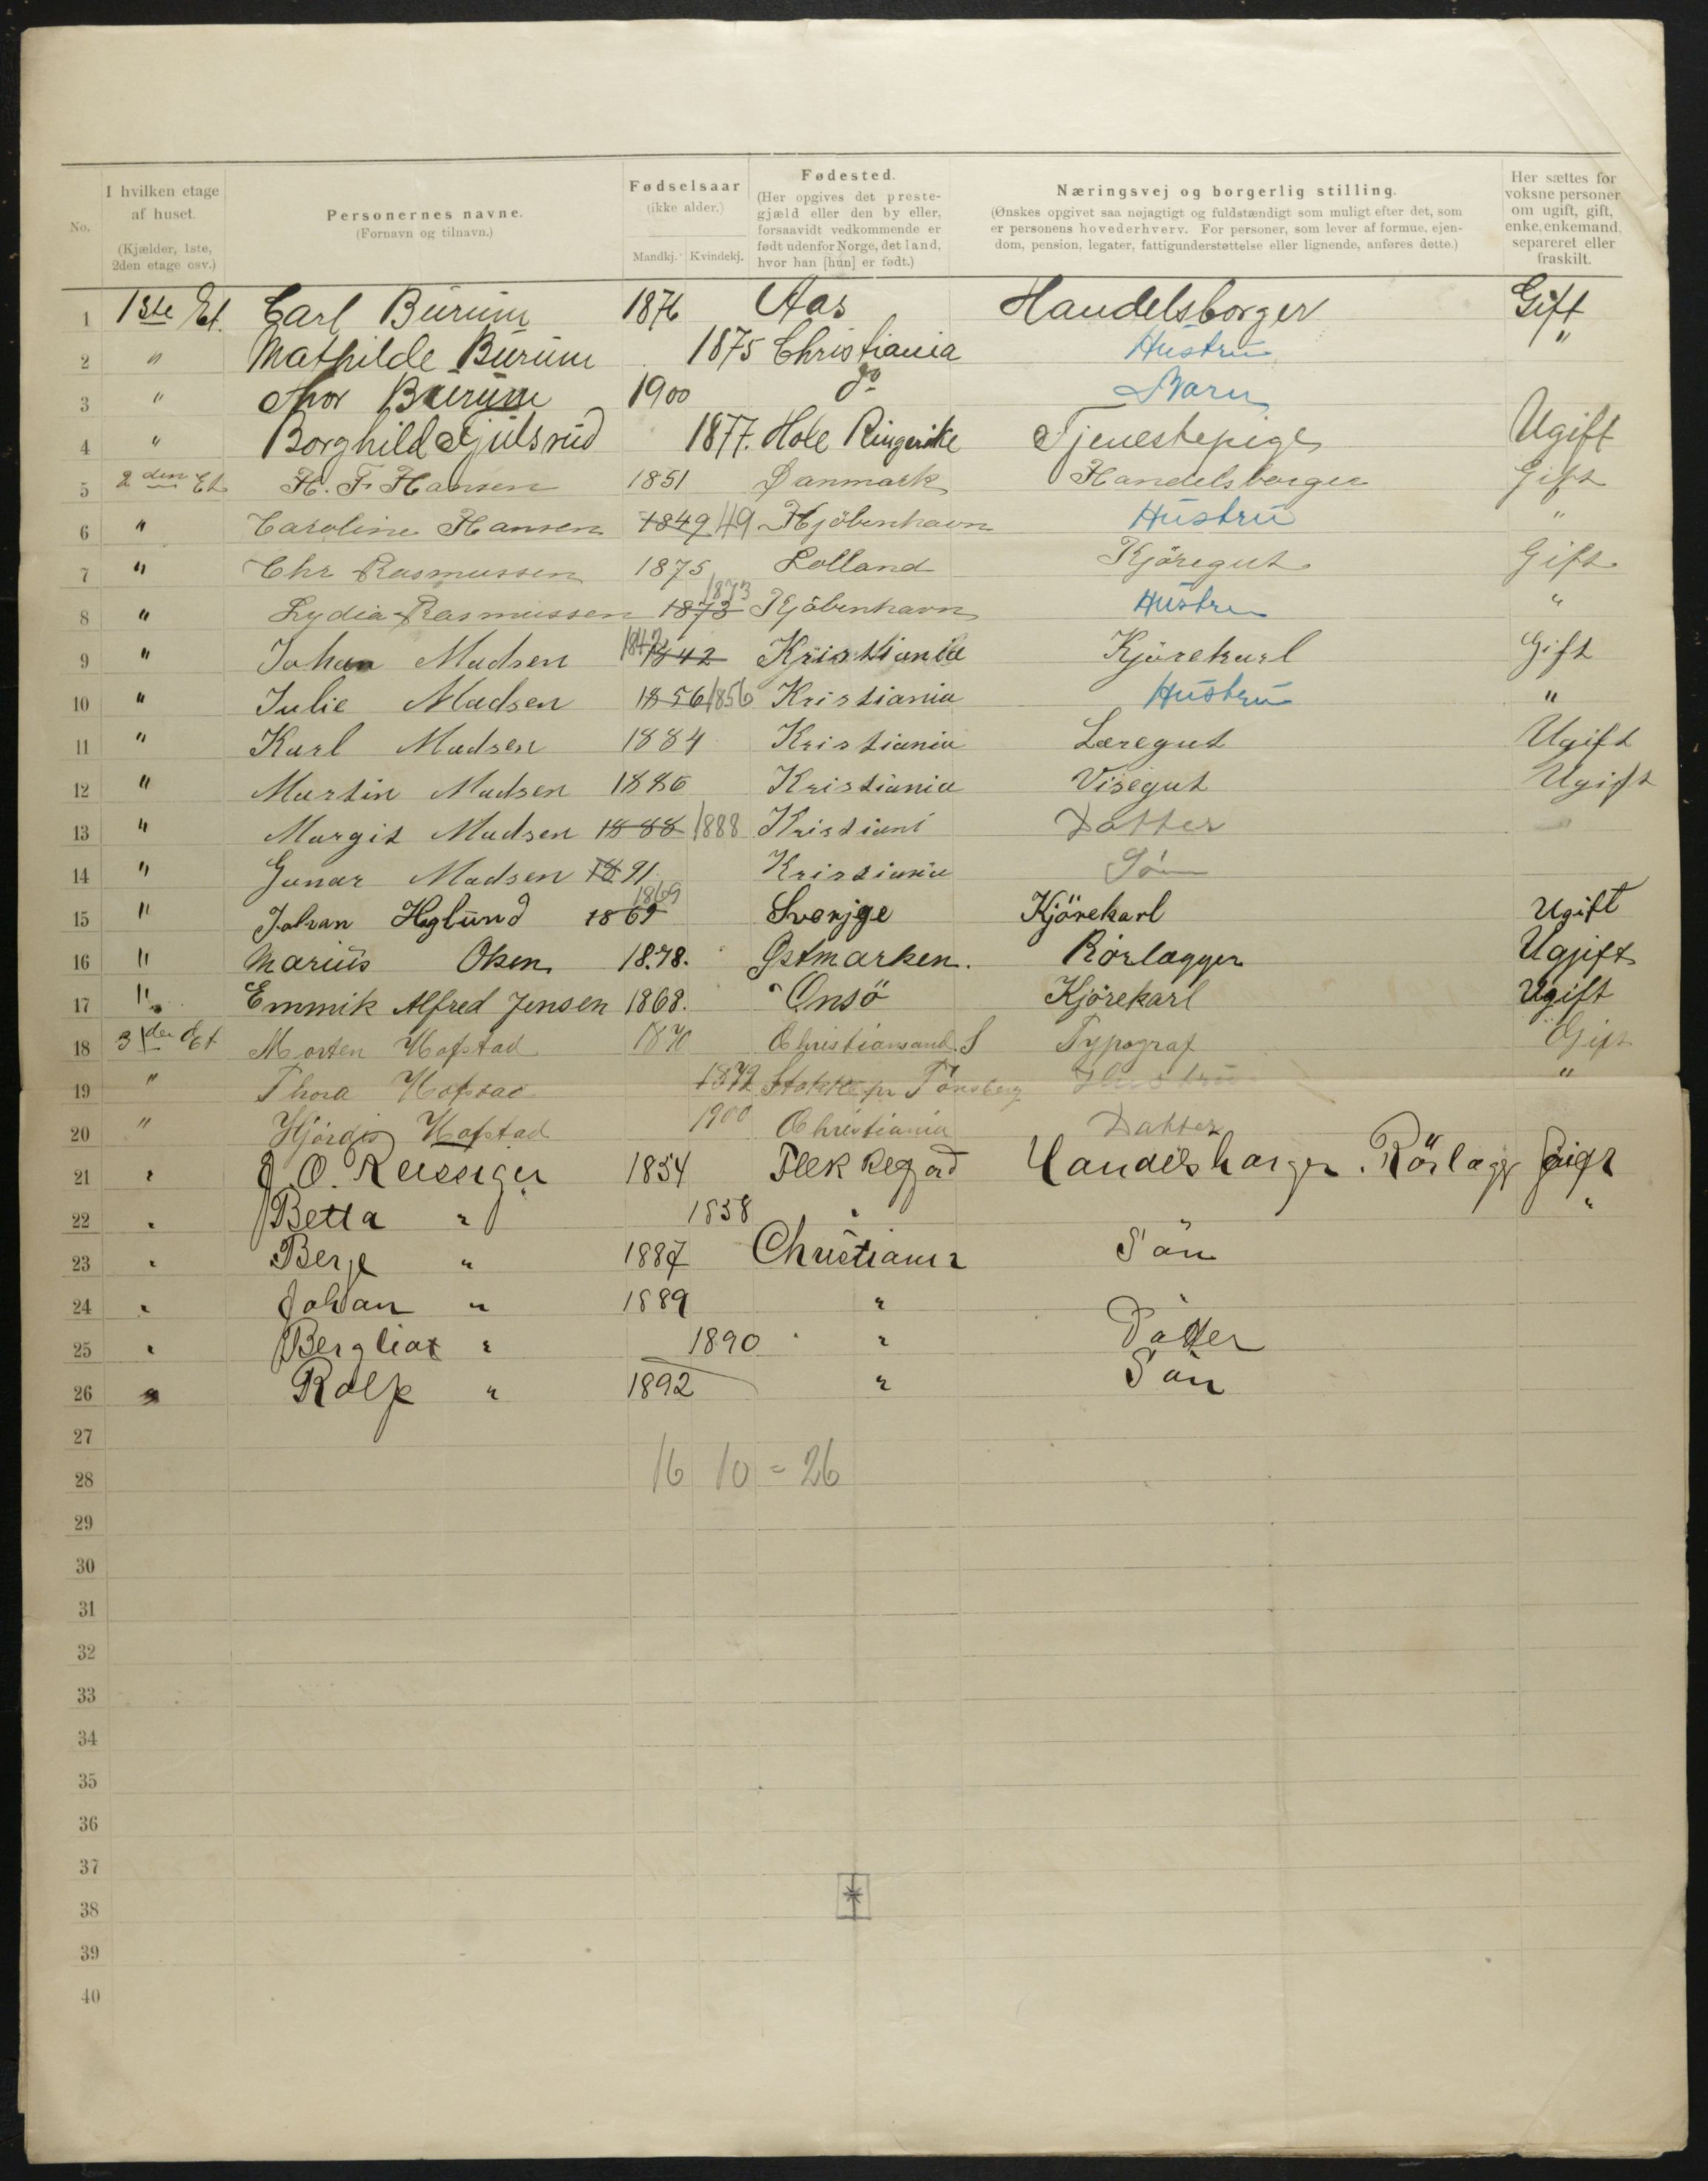 No.
I hvilken etage af huset.
(Kjælder, 1ste, 2den etage osv.)
Personernes navne.
(Fornavn og tilnavn.)
Fødselsaar
(ikke alder.)
Mandkj. Kvindekj.
Fødested.
(Her opgives det prestegjæld eller den by eller, forsaavidt vedkommende er født udenfor Norge, det land, hvor han [hun] er født.)
Næringsvej og borgerlig stilling.
(Ønskes opgivet saa nøjagtigt og fuldstændigt som muligt efter det, som er personens hovederhverv. For personer, som lever af formue, ejendom, pension, legater, fattigunderstøttelse eller lignende, anføres dette.)
Her sættes for voksne personer om ugift, gift, enke, enkemand, separeret eller fraskilt.
1 1ste Et. Carl Burum 1876 Aas Handelsborger Gift
2 " Mathilde Burum 1875 Christiania Hustru "
3 " Thor Burum 1900 do Barn
4 " Borghild 1877. Hole Ringerike Tjenestepige Ugift
5 2den Et H. F. Hansen 1851 Danmark Handelsborger Gift
6 " Caroline Hansen 1849 49 Kjöbenhavn Hustru "
7 " Chr Rasmussen 1875 Lolland Kjöregut Gift
8 " Lydia Rasmussen 1873 1873 Kjöbenhavn Hustru "
9 " Johan Madsen 1842 1842 Kristiania Kjörekarl Gift
10 " Julie Madsen 1856 1856 Kristiania Hustru "
11 " Karl Madsen 1884 Kristiania Læregut Ugift
12 " Martin Madsen 1886 Kristiania Visegut Ugift
13 " Margit Madsen 1888 1888 Kristiani Datter
14 " Gunar Madsen 1891 Kristiania Søn
15 " Johan Høglund 1869 1869 Sverjge Kjörekarl Ugift
16 " Marius Olsen 1878. Østmarken. Rörlægger Ugift
17 " Emmik Alfred Jensen 1868. Onsö Kjörekarl Ugift
18 3die Et Morten Hofstad 1870 Christiansand. S Typograf Gift
19 " Thora Hofstad 1872 Stokke pr Tönsberg Hustru "
20 " Hjördis Hofstad 1900 Christiania Datter
21 " J. O. Reissiger 1854 Flekkefjord Handelsborger. Rörlægg Gift
22 " Betta " 1858 " "
23 " Berje " 1887 Christiania Sön
24 " Johan " 1889 "
25 " Bergliot " 1890 " Datter
26 " Rolf " 1892 " Sön
27
28 16 10 = 26
29
30
31
32
33
34
35
36
37
38
39
40